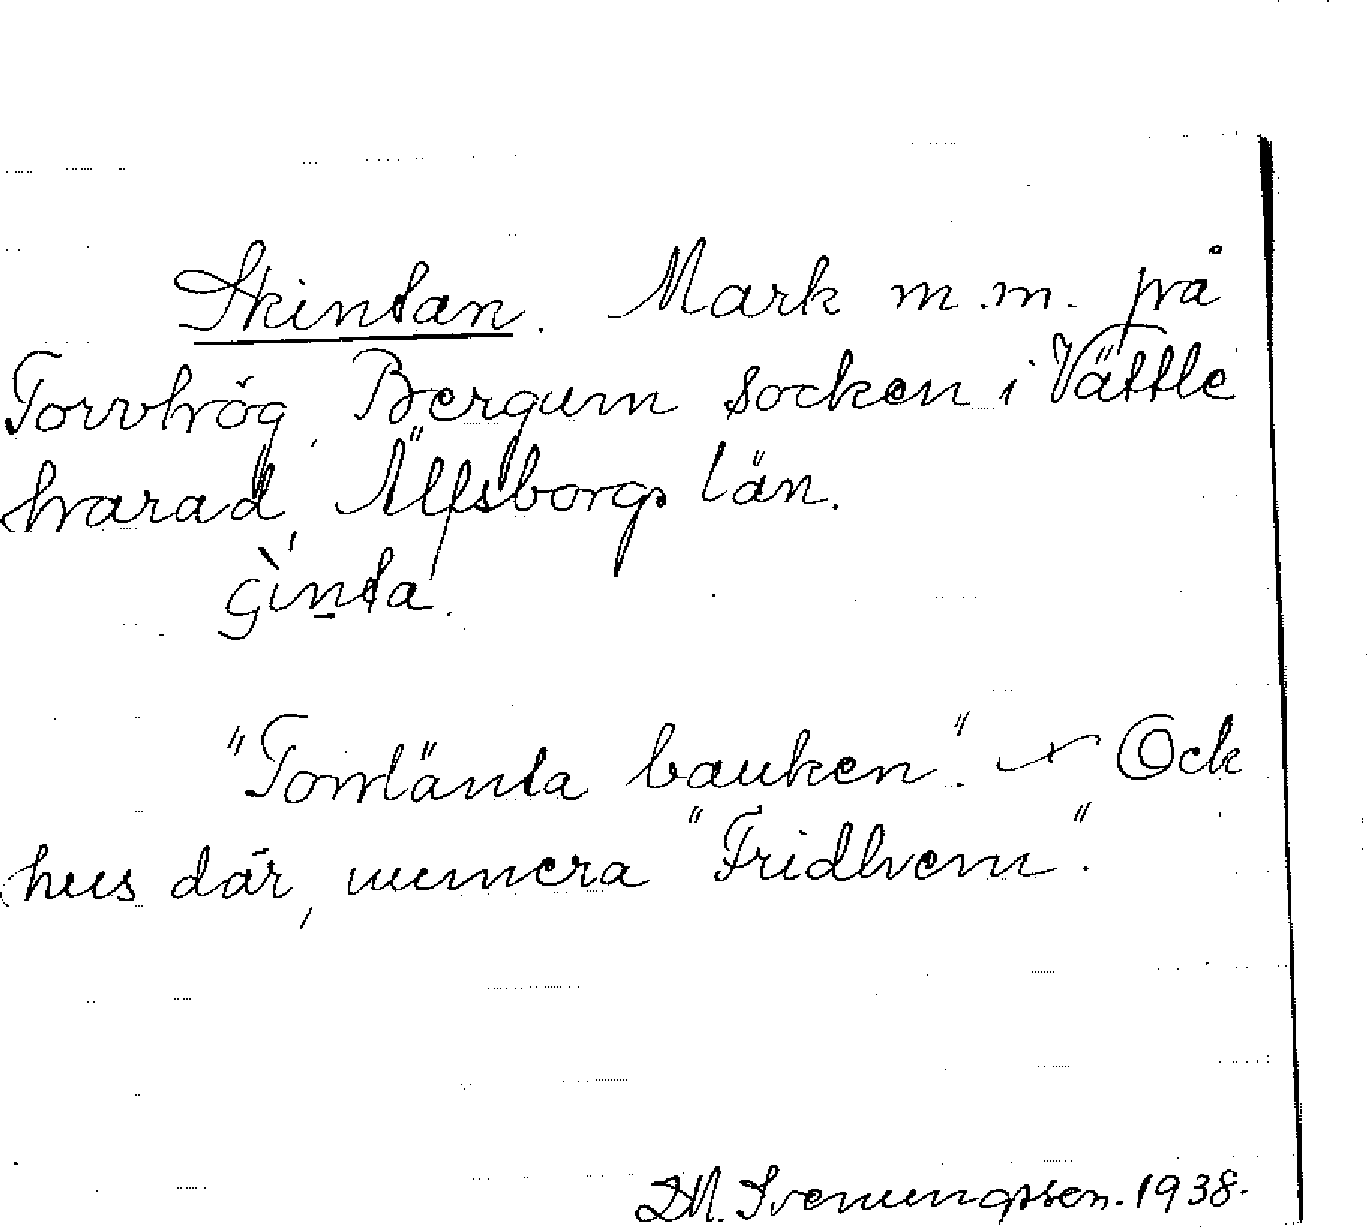 Skintan. Mark m.m. på
Torvhög, Bergum socken i Vättle
harad, Älfsborgs län.
ġinta.
"Tomtänta bauken". Ock
hus där, numera "Fridhem".
D.M. Svenungsson. 1938.